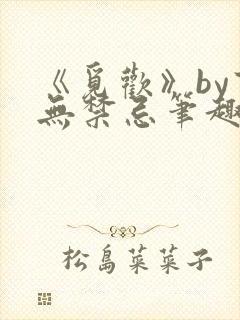 《覓歡》by
無禁忌筆趣
松島菜菜子